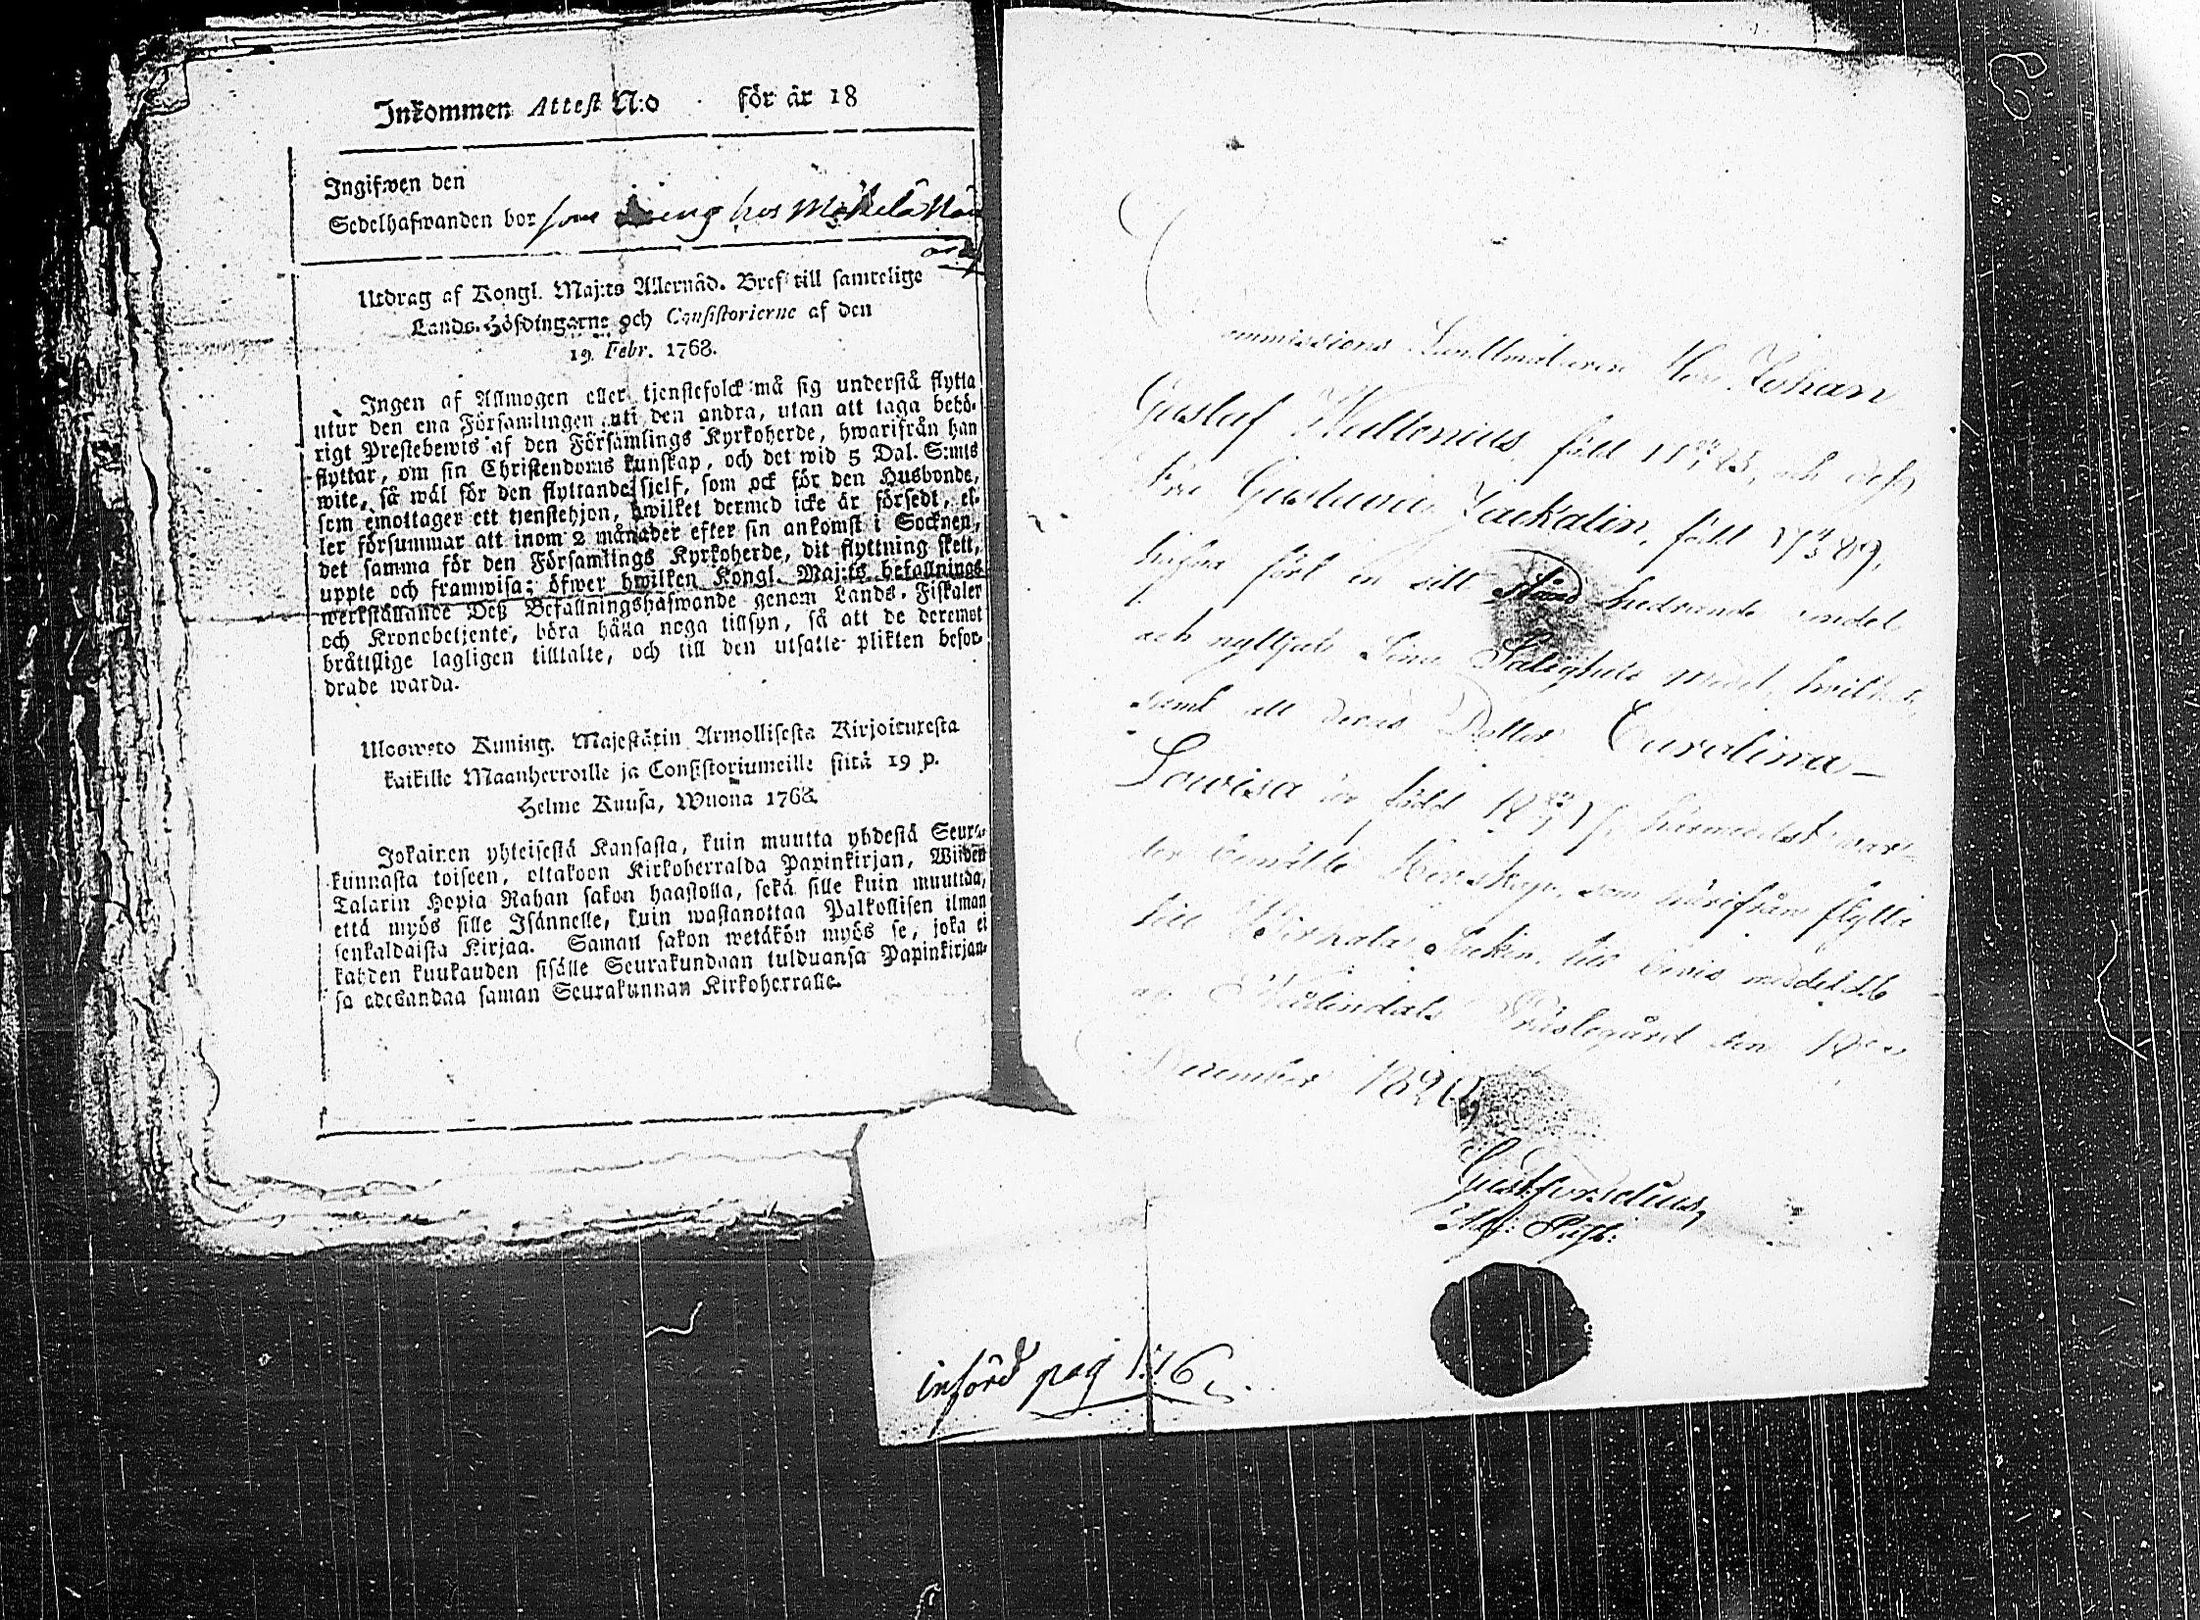 Inkommen Attest N:o för år 18
Ingifwen den
Sedelhafwanden bor som dreng hos Mäkelä
Utdrag af Kongl. Maj:ts Allernåd. Bref till samtelige
Lands-Höfdingarne och Consistorierne af den
19 Febr. 1768.
Ingen af Allmogen eller tjenstefolck må sig understå flytta
utur den ena Församlingen uti den andra, utan att taga behö-
rigt Prestebewis af den Församlings Kyrkoherde, hwarifrån han
flyttar, om sin Christendoms kunskap, och det wid 5 Dal. S:mts
wite, så wäl för den flyttande sjelf, som ock för den Husbonde,
sem emottager ett tjenstehjon, hwilket dermed icke är försedt, el-
ler försummar att inom 2 månader efter sin ankomst i Socknen,
det samma för den Församlings Kyrkoherde, dit flyttning skett,
uppte och framwisa; öfwer hwilken Kongl. Maj:ts befallnings
werkställande Deß Befallningshafwande genom Lands-Fiskaler
och Kronobetjente, böra hålla noga tillsyn, så att de deremot
bråttslige lagligen tilltalte, och till den utsatte plikten befor-
drade warda.
Ulosweto Kuning. Majestätin Armollisesta Kirjoituxesta
kaikille Maanherroille ja Consistoriumeille siitä 19 p.
Helme Kuusa, Wuona 1768.
Jokainen yhteisestä Kansasta, kuin muutta yhdestä Seura-
kunnasta toiseen, ottakoon Kirkoherralda Papinkirjan, Wiiden
Talarin Hopia Rahan sakon haastolla, sekä sille kuin muutta,
että myös sille Isännelle, kuin wastanottaa Palkollisen ilman
senkaldaista Kirjaa. Saman sakon wetäkön myös se, joka ei
kahden kuukauden sisälle Seurakundaan tulduansa Papinkirjan-
sa edesandaa saman Seurakunnan Kirkoherralle.
Commissions Landtmätaren Herr Johan
Gustaf Wallenius, född och dess
Fru Gustava Jackalin, född 17 89,
hafva fört en sitt Stånd hedrande vandel
och nyttjat Sina Salighets medel, hvilket,
samt att deras Dotter Carolina
Lovisa är född 18 härmedelst
bemälte Herrskap, som härifrån flytta
till Socken, till bevis meddelt
af Prästegård den 18
December 1820,
Past:
införd pag 176